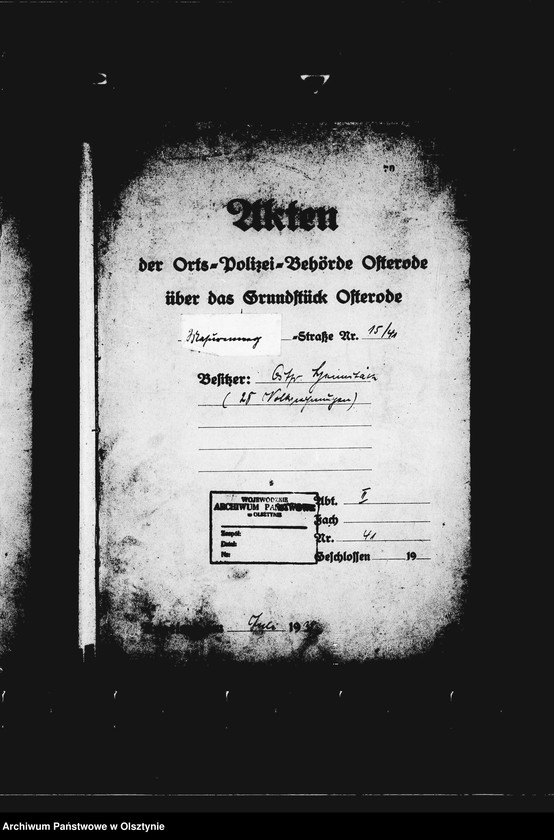 Akten
der Orts=Polizei=Behörde Osterode
über das Grundstück Osterode
=Straße Nr. 15/41
Besitzer: Ostpr. Heimstätte
( 28 Volkswohnungen)
WOJEWÓDZKIE
ARCHIWUM PAŃSTWOWE
w OLSZTYNIE
Zespół:
Dział:
Nr:
Abt. II
Fach
Nr. 41
Geschlossen 19
Juli 193
Archiwum Państwowe w Olsztynie